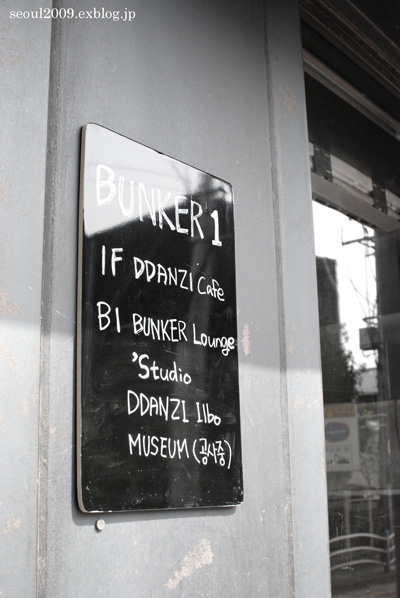 seoul2009.exblog.jp
BUNKER 1
1F DDANZI Cafe
B1 BUNKER Lounge
'Studio
DDANZI Ilbo
MUSEUM (공사중)